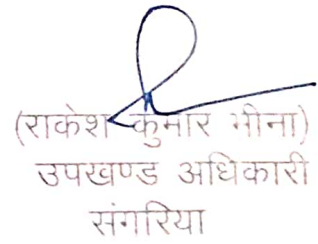 (राकेश कुमार मीना)
उपखण्ड अधिकारी
संगरिया